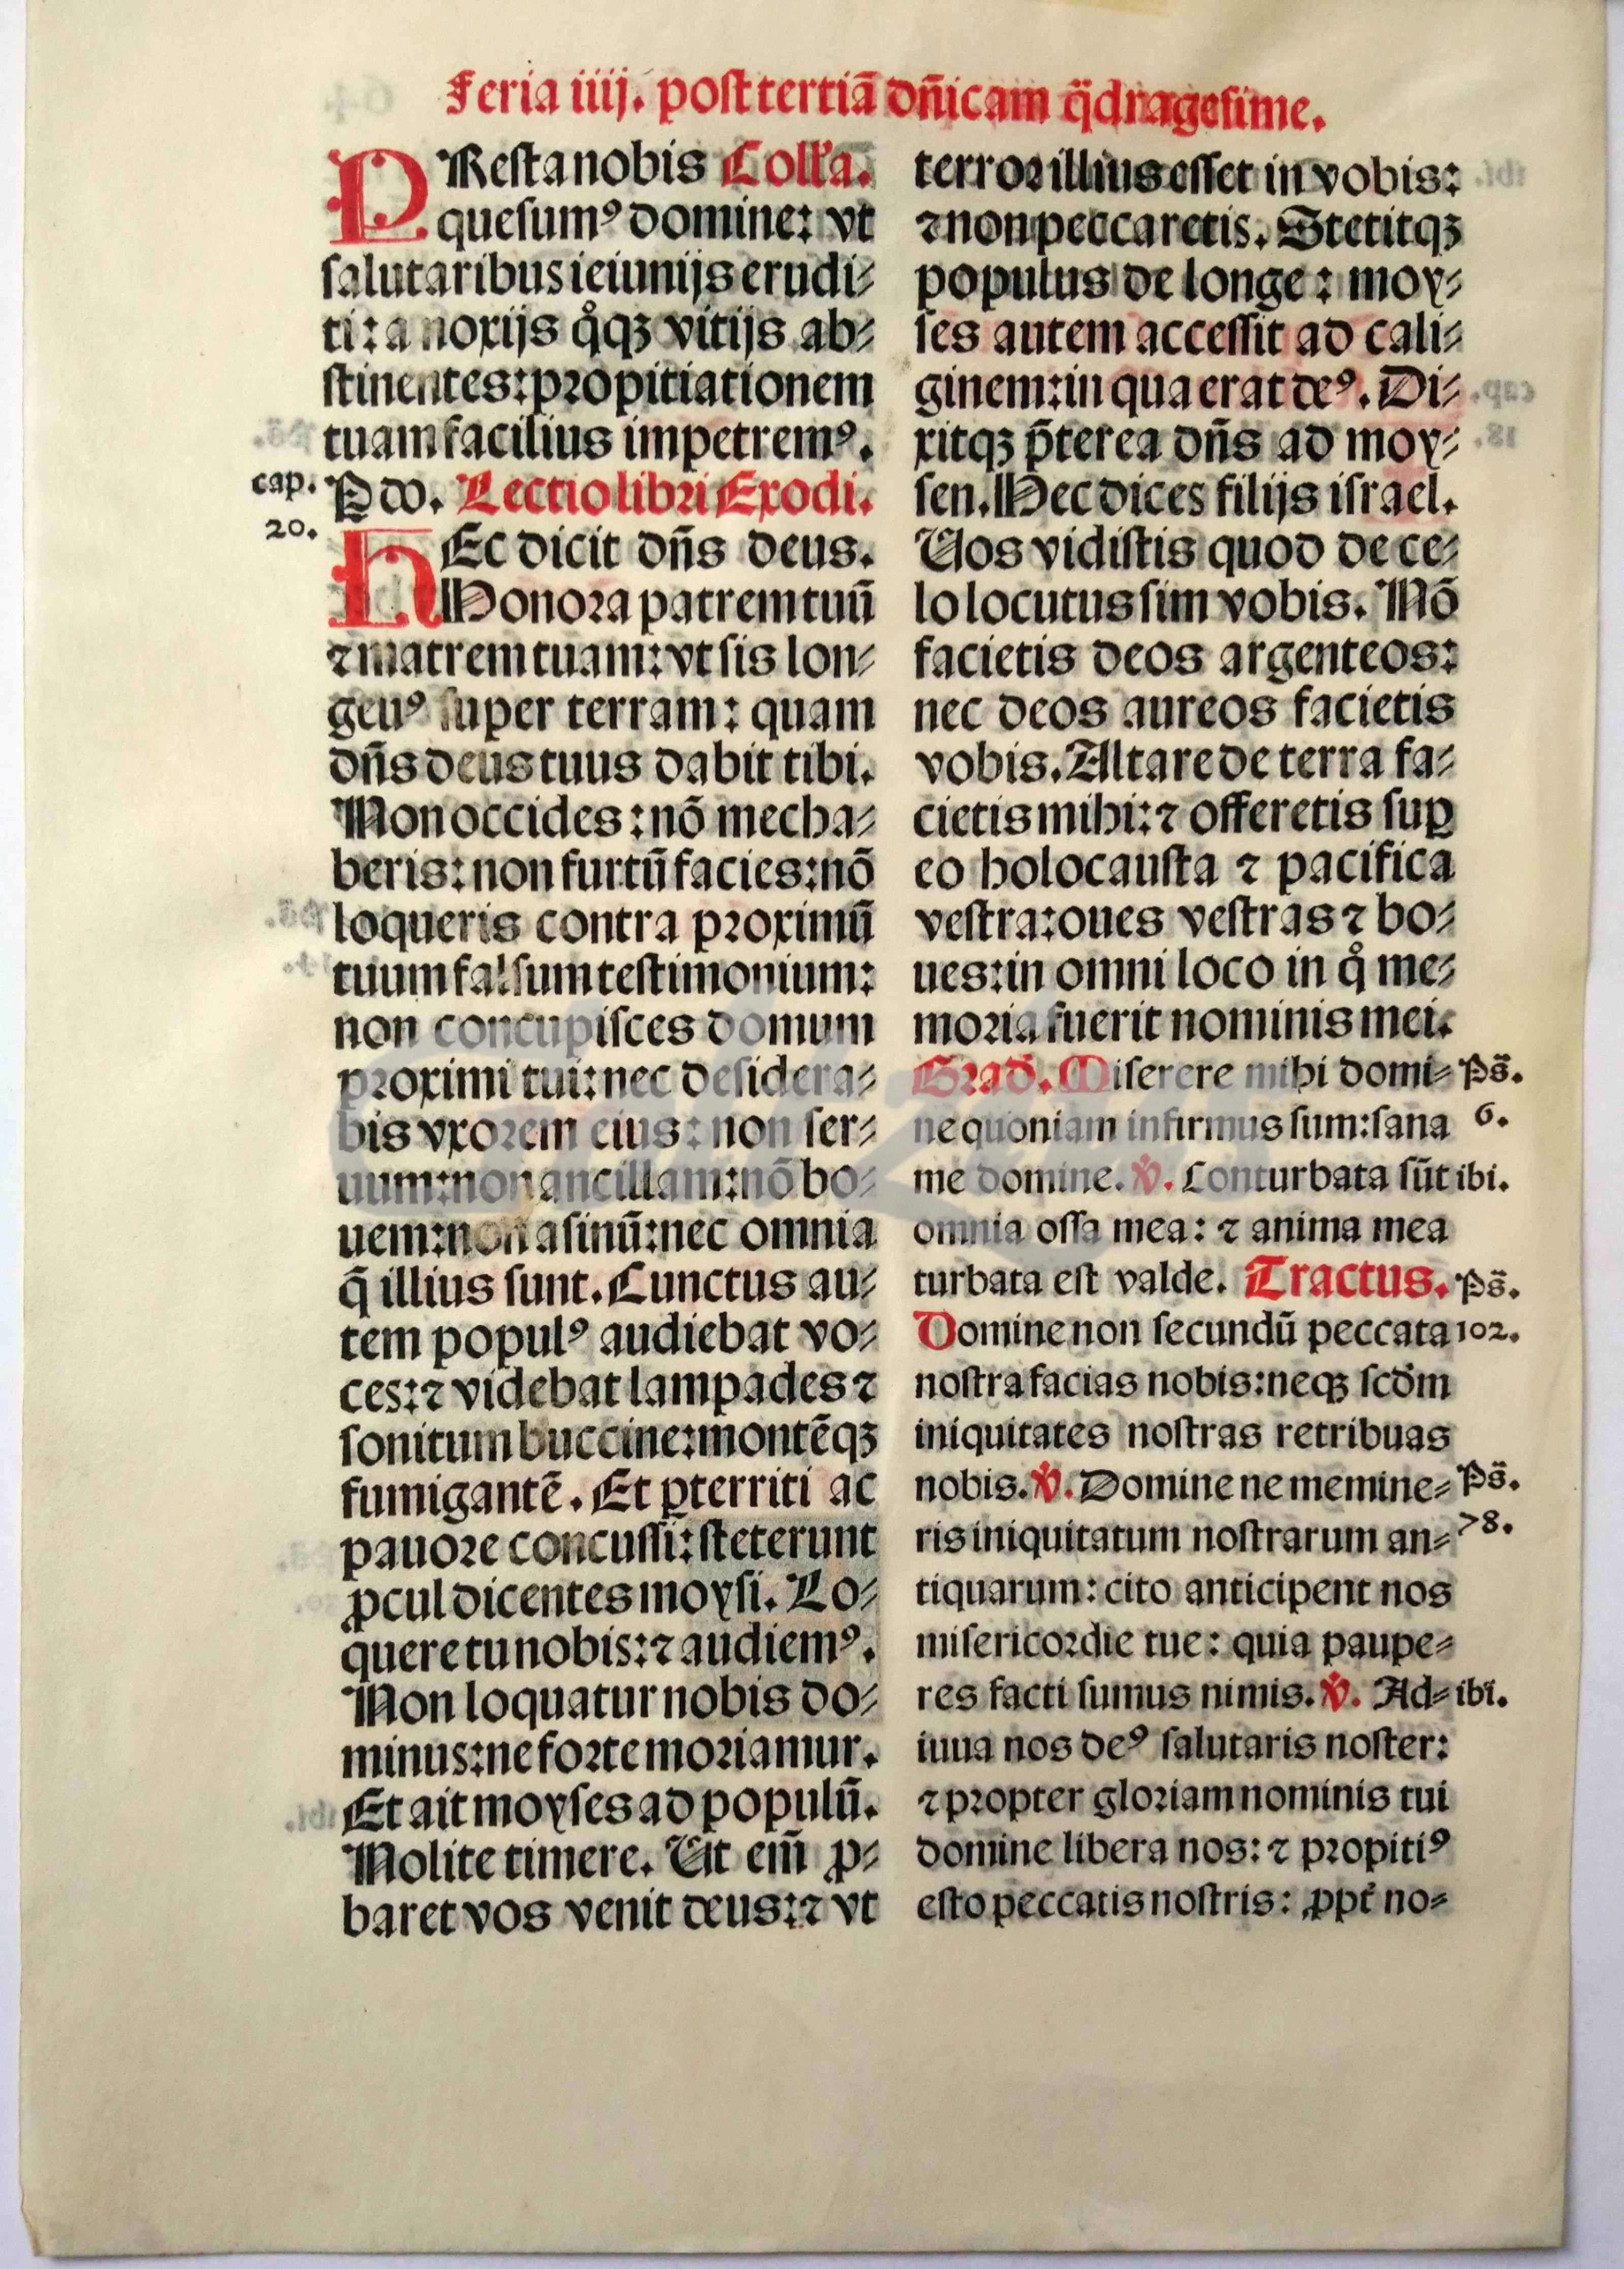 Feria iiij. post tertiā dñicam q̄dragesime.
PRestanobis Coll'a.
quesumꝰ domine: vt
salutaribus ieiunijs erudi⸗
ti: a noxijs qͦqꝫ vitijs ab⸗
stinentes: propitiationem
tuam facilius impetremꝰ.
cap. P do. Lectio libri Exodi.
20. HEc dicit dñs deus.
Honora patrem tuū
⁊ matrem tuam: vt sis lon⸗
geuꝰ super terram: quam
dñs deus tuus dabit tibi.
Non occides: nō mecha⸗
beris: non furtū facies: nō
loqueris contra proximū
tuum falsum testimonium:
non concupisces domum
proximi tui: nec desidera⸗
bis vxorem eius: non ser⸗
uum: non ancillam: nō bo⸗
uem: non asinū: nec omnia
q̄ illius sunt. Cunctus au⸗
tem populꝰ audiebat vo⸗
ces: ⁊ videbat lampades ⁊
sonitum buccine: montēqꝫ
fumigantē. Et ꝑterriti ac
pauore concussi: steterunt
ꝓcul dicentes moysi. Lo⸗
quere tu nobis: ⁊ audiemꝰ.
Non loquatur nobis do⸗
minus: ne forte moriamur.
Et ait moyses ad populū.
Nolite timere. Ut em̄ ꝓ⸗
baret vos venit deus: ⁊ vt
terror illius esset in vobis:
⁊ non peccaretis. Stetitqꝫ
populus de longe: moy⸗
ses autem accessit ad cali⸗
ginem: in qua erat deꝰ. Di⸗
xitqꝫ p̄terea dñs ad moy⸗
sen. Hec dices filijs israel.
Uos vidistis quod de ce⸗
lo locutus sim vobis. Nō
facietis deos argenteos:
nec deos aureos facietis
vobis. Altare de terra fa⸗
cietis mihi: ⁊ offeretis suꝑ
eo holocausta ⁊ pacifica
vestra: oues vestras ⁊ bo⸗
ues: in omni loco in qͦ me⸗
moria fuerit nominis mei.
Grad. Miserere mihi domi⸗ Ps̄.
ne quoniam infirmus sum: sana 6.
me domine. ℣. Conturbata sūt ibi.
omnia ossa mea: ⁊ anima mea
turbata est valde. Tractus. Ps̄.
Domine non secundū peccata 102.
nostra facias nobis: neqꝫ scd̄m
iniquitates nostras retribuas
nobis. ℣. Domine ne memine⸗ Ps̄.
ris iniquitatum nostrarum an⸗ 78.
tiquarum: cito anticipent nos
misericordie tue: quia paupe⸗
res facti sumus nimis. ℣. Ad⸗ ibi.
iuua nos deꝰ salutaris noster:
⁊ propter gloriam nominis tui
domine libera nos: ⁊ propitiꝰ
esto peccatis nostris: ꝓpt̄ no⸗